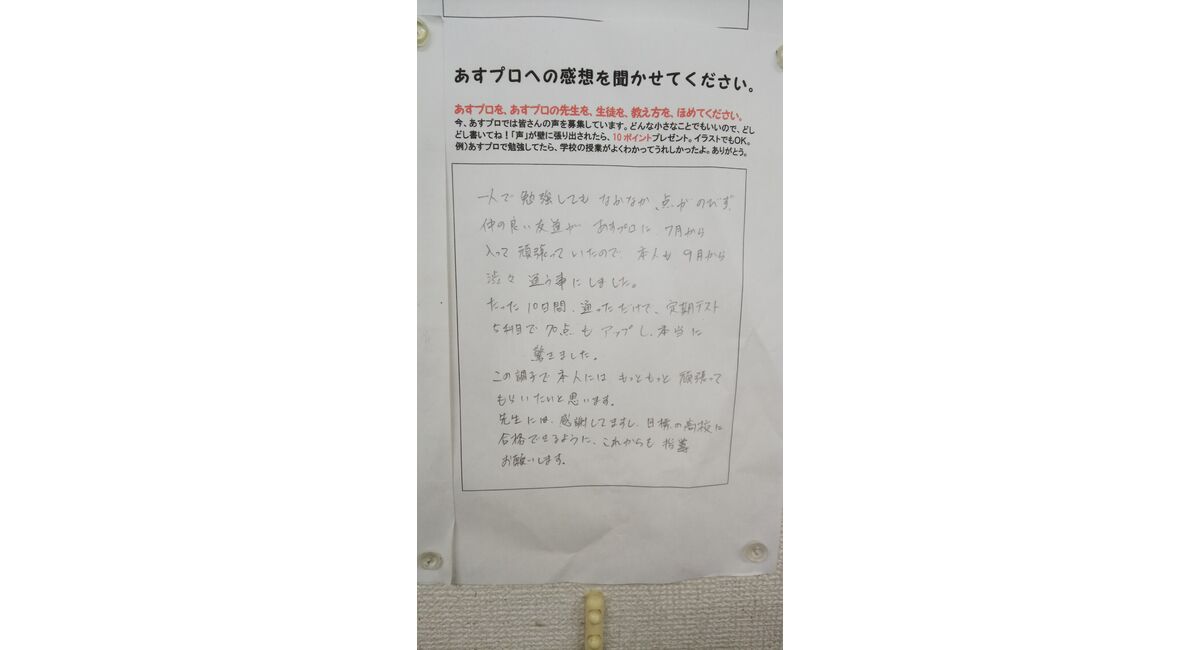 あすプロへの感想を聞かせてください。
あすプロを、あすプロの先生を、生徒を、教え方を、ほめてください。
今、あすプロでは皆さんの声を募集しています。どんな小さなことでもいいので、どし
どし書いてね！「声」が壁に張り出されたら、10ポイントプレゼント。イラストでもOK。
例)あすプロで勉強してたら、学校の授業がよくわかってうれしかったよ。ありがとう。
一人で勉強してもなかなか、点がのびず、
仲の良い友達が あすプロに 7月から
入って 頑張っていたので、本人も 9月から
渋々 通う事にしました。
たった10日間、通っただけで、定期テスト
5科目で 70点も アップし、本当に
驚きました。
この調子で本人には もっともっと 頑張って
もらいたいと思います。
先生には、感謝してますし、目標の高校に
合格できるように、これからも 指導
お願いします。